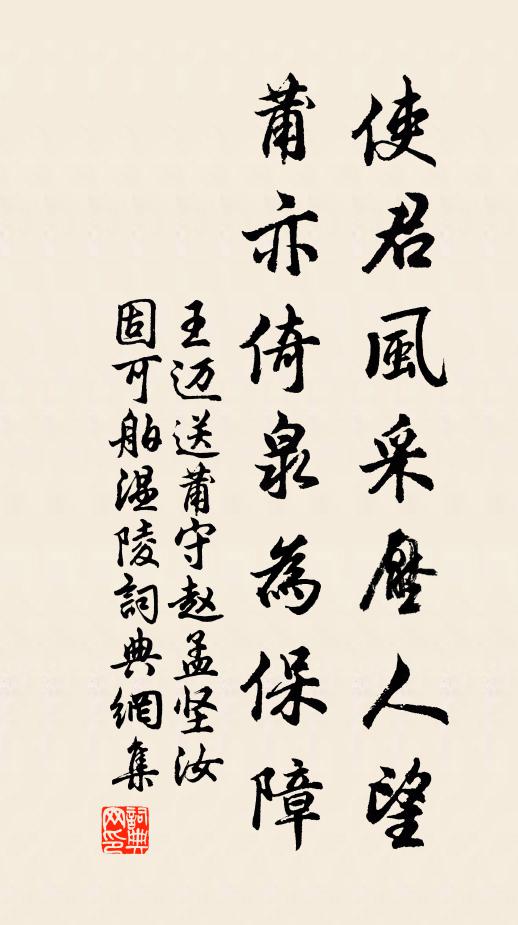 使君風采壓人望
莆亦倚泉為保障
王迈送莆守赵孟坚汝
固可舶温陵詞典網集
詞典
网印